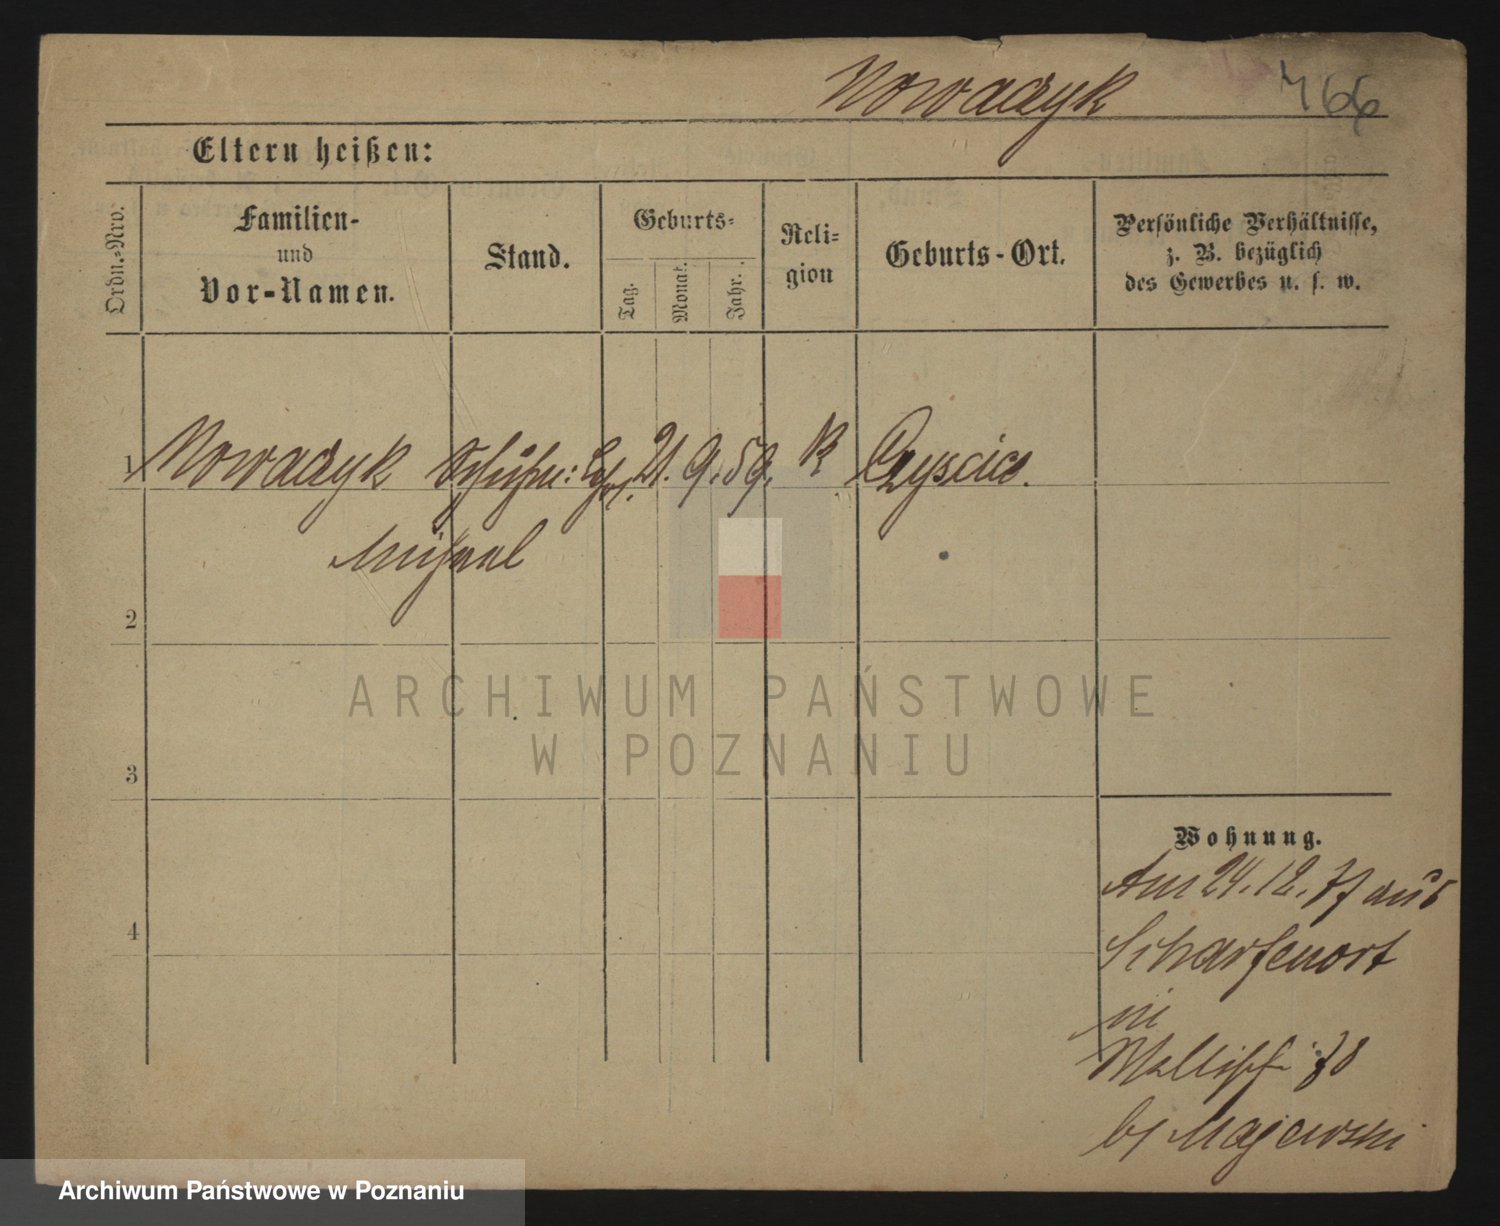 Nowaczyk 766
Eltern heißen:
Ordn.-Nro.
Familien-
und
Vor-Namen.
Stand.
Geburts-
Tag.
Monat.
Jahr.
Reli-
gion
Geburts-Ort.
Persönliche Verhältnisse,
z. B. bezüglich
des Gewerbes u. s. w.
1 Nowaczyk 21. 9. 59. K
Michael
2
3
4
Wohnung.
Am 24. 12. 77 aus
Scharfenort
in
Wallischei 78
b/ Majewski
ARCHIWUM PAŃSTWOWE
W POZNANIU
Archiwum Państwowe w Poznaniu